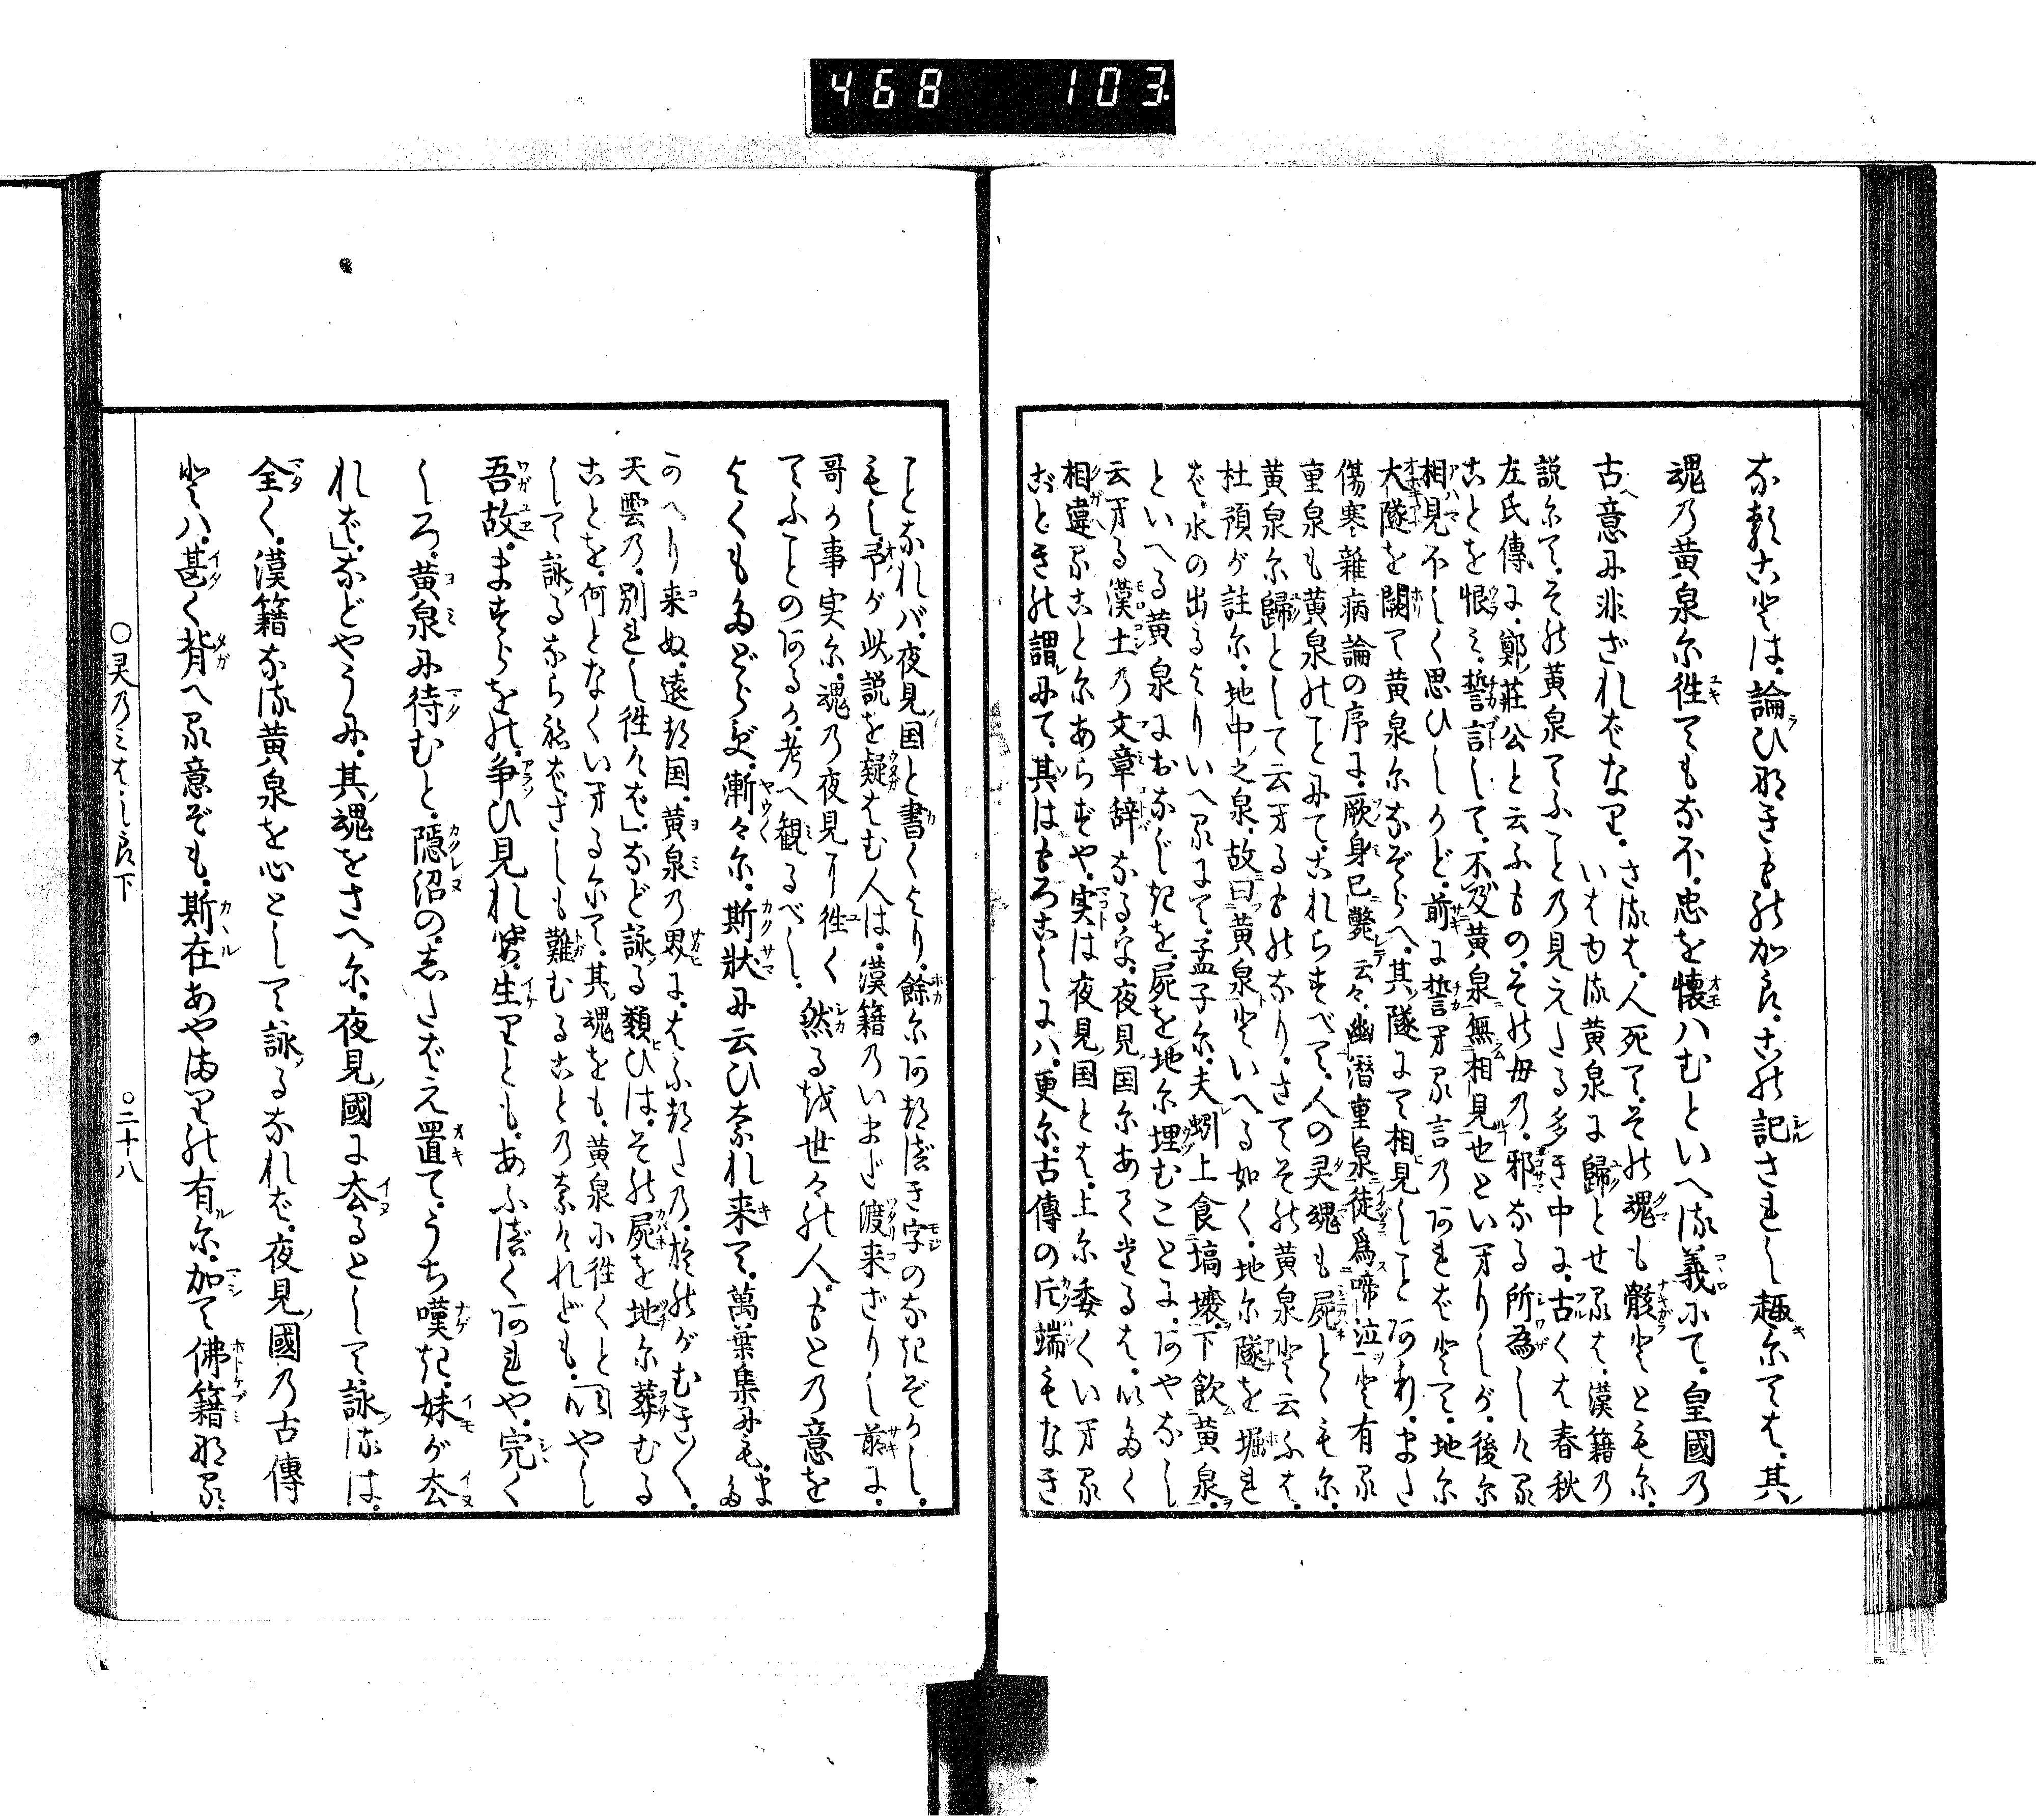 468 103
な類古とは、論ひ那きも能加良、古能記されし趣尓ては、其ノ
魂乃黄泉尓往ても、な不忠を懐ハむといへる義にて、皇國の
古ヘ意に非ざれバなり、さるは、人死て、その魂も骸とともに、
いはゆる黄泉に歸とせるは、漢籍の
説にて、その黄泉てふことの見えたる多き中に、古くは春秋
左氏傳に、鄭ノ莊公と云ふもの、その母の、邪なる所為しける
ことを恨み、誓言して、不及黄泉無相見也といへりしが、後に
相見不しく思ひしかど、前に誓へる言のあれバとて、地に
大隧を闕て黄泉になぞらへ、其ノ隧にて相見しことあり、また
傷寒雜病論の序に、厥身已斃云々、幽潜重泉、徒爲啼泣と有る
重泉も黄泉のことにて、これらすべて、人の灵魂も屍とゝもに、
黄泉に歸として云へるものなり、さてその黄泉と云ふは、
杜預が註に、地中之泉、故曰黄泉といへる如く、地に隧を堀れ
ば、水の出るよりいへるにて、孟子に、夫蚓上食槁壤、下飲黄泉、
といへる黄泉におなじきを、屍を地に埋むことに、あやなし
云へる漢土の文章辞なるを、夜見ノ国にあてたるは、いたく
相違ることにあらずや、実は夜見ノ国とは、上に委くいへる
ごときの謂にて、其はもろこしにハ、更に古傳の片端もなき
ことなれバ、夜見ノ国と書くより、餘にあるべき字のなきぞかし、
もし予が此ノ説を疑はむ人は、漢籍のいまだ渡来ざりし前に、
哥か事実に、魂の夜見に往く
てふことのあるか、考へ観るべし、然るを世々の人、もとの意を
よくもたどらで、漸々に、斯状に云ひなれ来て、萬葉集にも、また
かへり来ぬ、遠き国、黄泉の界に、はふつたの、於のがむき〱、
天雲の、別れし往けば」など詠る類ひは、その屍を地に葬むる
ことを、何となくいへるにて、其ノ魂をも、黄泉に往くと
して詠るならねば、さしも難むることのなけれども、
吾故、ますらをの、争ひ見れば、生りとも、あふべくあれや、完く
しろ、黄泉に待むと、隠沼の、志たばえ置て、うち嘆き、妹が去
れば」などやうに、其ノ魂をさへに、夜見ノ國に去るとして詠るは、
全く漢籍なる黄泉を心として詠るなれば、夜見ノ國の古傳
とハ、甚く背へる意ぞも、斯在あやまりの有に、加て佛籍なる
○灵乃みはしら下 ○二十八